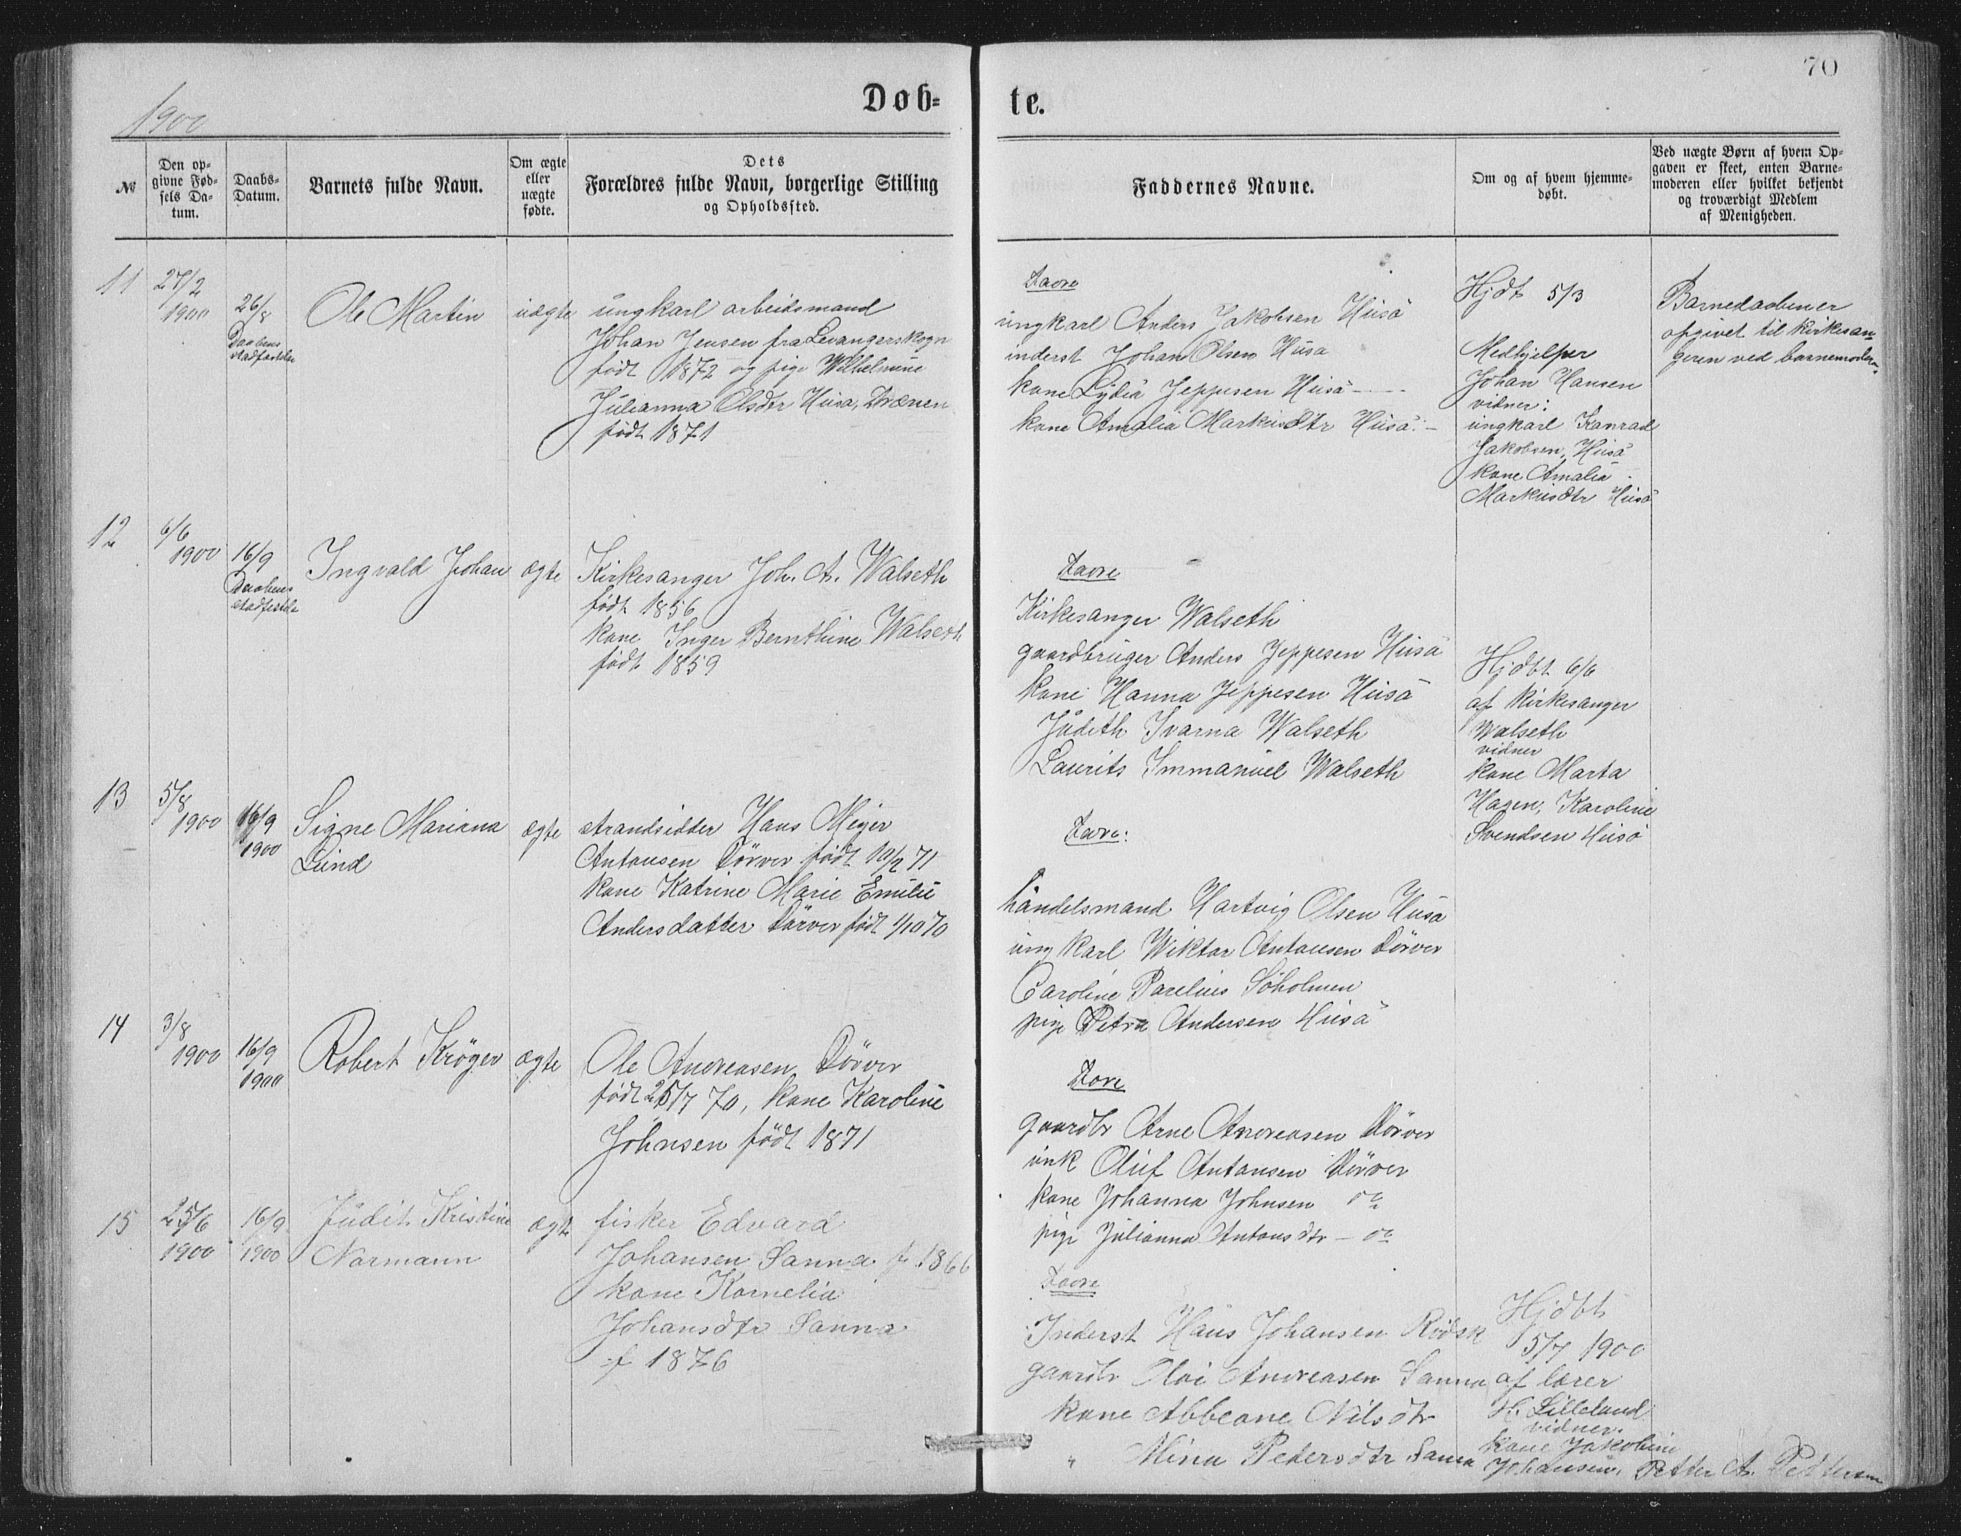 70
1900
Døb-
te.
№
Den op-
givne Fød-
sels Da-
tum.
Daabs-
Datum.
Barnets fulde Navn.
Om ægte
eller
uægte
fødte.
Dets
Forældres fulde Navn, borgerlige Stilling
og Opholdssted.
Faddernes Navne.
Om og af hvem hjemme-
døbt.
Ved uægte Børn af hvem Op-
gaven er skeet, enten Barne-
moderen eller hvilket bekjendt
og troværdigt Medlem
af Menigheden.
11
27/2
1900
26/8
Daabens
stadfæstelse
Ole Martin
uægte
ungkarl arbeidsmand
Johan Jensen fra Levangerskogn
født 1872 og pige Wilhelmine
Julianna Olsdtr Husø, Trænen
født 1871
Træna
ungkarl Anders Jakobsen Husø
inderst Johan Olsen Husø
kone Lydia Jeppesen Husø
kone Amalia Markusdtr Husø
Hjdt 5/3
Medhjelper
Johan Hansen
vidner:
ungkarl Konrad
Jakobsen, Husø
kone Amalia
Markusdtr Husø
Barnedaaben er
opgivet til kirkesan-
geren ved barnemoder.
12
6/6
1900
16/9
Daabens
stadfæstelse
Ingvald Johan
ægte
Kirkesanger Joh. A. Walseth
født 1856
kone Inger Bernthine Walseth
født 1859
Kirkesanger Walseth
gaardbruger Anders Jeppesen Husø
kone Hanna Jeppesen Husø
Judith Svarna Walseth
Laurits Immanuel Walseth
Hjdbt 6/6
af Kirkesanger
Walseth
vidner
kone Marta
Hagen, Karoline
Svendsen Husø
13
5/8
1900
16/9
1900
Signe Mariana
Lund
ægte
strandsidder Hans Meyer
Antonsen Dørver født 10/2 71
kone Katrine Marie Emilie
Andersdatter Dørver født 1/10 70
handelsmand Hartvig Olsen Husø
ungkarl Wiktor Antonsen Dørver
Caroline Parelius Søholmen
pige Petra Andersen Husø
14
3/8
1900
16/9
1900
Robert Krøger
ægte
Ole Andreasen Dørver
født 25/7 70, kone Karoline
Johnsen født 1871
gaardbr Arne Andreasen Dørver
unk Oluf Antonsen Dørver
kone Johanna Johnsen do
pige Julianna Antonsdtr – do
15
25/6
1900
16/9
1900
Judit Kristine
Normann
ægte
fisker Edvard
Johansen Sanna f. 1866
kone Kornelia
Johansdtr Sanna
f 1876
Inderst Hans Johansen Rødsk
gaardbr Andreasen Sanna
kone Abbeane Nilsdtr
" Mina Pedersdtr Sanna
Hjdbt
5/7 1900
af lærer
H. Lilleland
vidner.
kone Jakobine
Johansen, Petter A. Pettersen